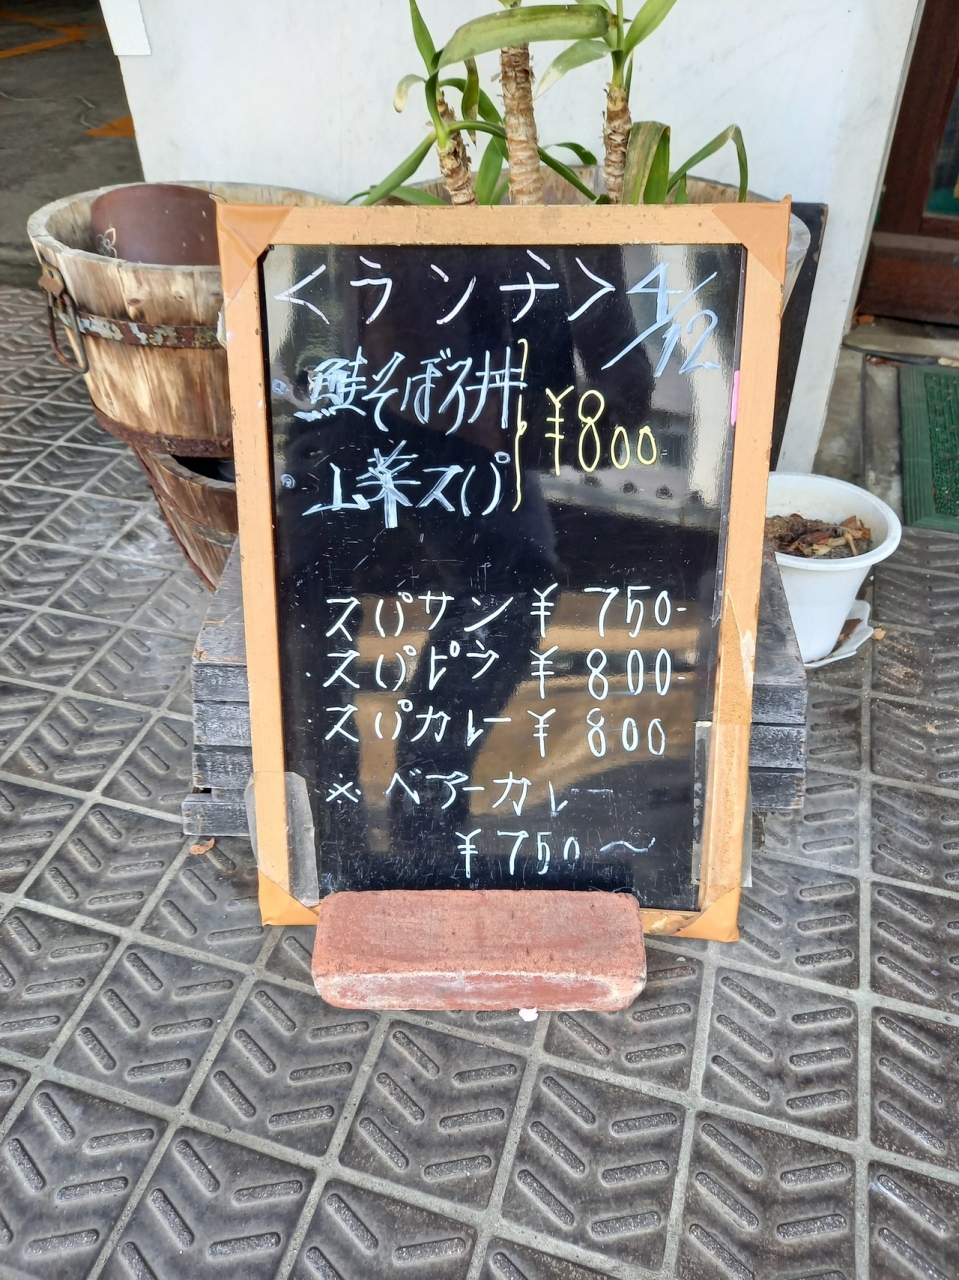 <ランチ> 4/12
鮭そぼろ丼
¥800
山菜スパ
スパサン ¥750-
・スパピラ ¥800-
・スパカレー ¥800
※ベアーカレー
¥750〜